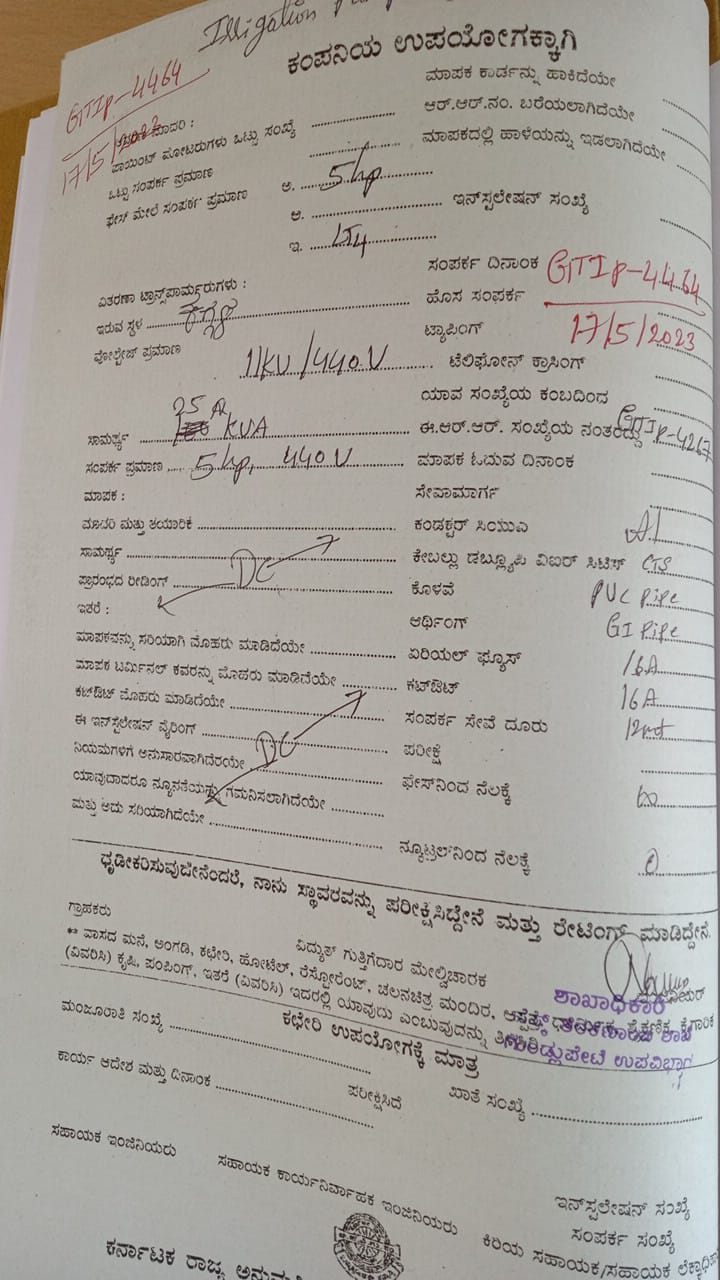 Irrigation
ಕಂಪನಿಯ ಉಪಯೋಗಕ್ಕಾಗಿ
GTIP-4464
17/5/2023
ಮಾಪಕ ಕಾರ್ಡನ್ನು ಹಾಕಿದೆಯೇ
ಆರ್.ಆರ್.ನಂ. ಬರೆಯಲಾಗಿದೆಯೇ
ಪಾಯಿಂಟ್ ಮೋಟರುಗಳು ಒಟ್ಟು ಸಂಖ್ಯೆ
ಮಾಪಕದಲ್ಲಿ ಹಾಳೆಯನ್ನು ಇಡಲಾಗಿದೆಯೇ
ಒಟ್ಟು ಸಂಪರ್ಕ ಪ್ರಮಾಣ
ಫೇಸ್ ಮೇಲೆ ಸಂಪರ್ಕ ಪ್ರಮಾಣ ಅ. 5hp
ಆ. ಇನ್‌ಸ್ಟಲೇಷನ್ ಸಂಖ್ಯೆ
ಇ. LT4
ಸಂಪರ್ಕ ದಿನಾಂಕ GTIP-4464
ವಿತರಣಾ ಟ್ರಾನ್ಸ್‌ಪಾರ್ಮ್ರರುಗಳು :
ಹೊಸ ಸಂಪರ್ಕ 17/5/2023
ಇರುವ ಸ್ಥಳ
ಟ್ಯಾಪಿಂಗ್
ವೋಲ್ಟೇಜ್ ಪ್ರಮಾಣ 11KV/440V ಟೆಲಿಫೋನ್ ಕ್ರಾಸಿಂಗ್
ಯಾವ ಸಂಖ್ಯೆಯ ಕಂಬದಿಂದ
ಸಾಮರ್ಥ್ಯ 25 KVA ಈ.ಆರ್.ಆರ್. ಸಂಖ್ಯೆಯ ನಂತರದ್ದು GTIP-4267
ಸಂಪರ್ಕ ಪ್ರಮಾಣ 5hp, 440V ಮಾಪಕ ಓದುವ ದಿನಾಂಕ
ಮಾಪಕ : ಸೇವಾಮಾರ್ಗ
ಮಾದರಿ ಮತ್ತು ತಯಾರಿಕೆ ಕಂಡಕ್ಟರ್ ಸಿಯುಎ Al
ಸಾಮರ್ಥ್ಯ DC ಕೇಬಲ್ಲು ಡಬ್ಲ್ಯೂಪಿ ವಿಐಆರ್ ಸಿಟಿಸ್ CTS
ಪ್ರಾರಂಭದ ರೀಡಿಂಗ್ ಕೊಳವೆ PVC Pipe
ಇತರೆ : ಅರ್ಥಿಂಗ್ GI Pipe
ಮಾಪಕವನ್ನು ಸರಿಯಾಗಿ ಮೊಹರು ಮಾಡಿದೆಯೇ ಏರಿಯಲ್ ಫ್ಯೂಸ್ 16A
ಮಾಪಕ ಟರ್ಮಿನಲ್ ಕವರನ್ನು ಮೊಹರು ಮಾಡಿದೆಯೇ ಕಟ್‌ಔಟ್ 16A
ಕಟ್‌ಔಟ್ ಮೊಹರು ಮಾಡಿದೆಯೇ ಸಂಪರ್ಕ ಸೇವೆ ದೂರು
ಈ ಇನ್‌ಸ್ಟಲೇಷನ್ ವೈರಿಂಗ್ DC ಪರೀಕ್ಷೆ
ನಿಯಮಗಳಿಗೆ ಅನುಸಾರವಾಗಿದೆರಯೇ ಫೇಸ್‌ನಿಂದ ನೆಲಕ್ಕೆ
ಯಾವುದಾದರೂ ನ್ಯೂನತೆಯನ್ನು ಗಮನಿಸಲಾಗಿದೆಯೇ
ಮತ್ತು ಅದು ಸರಿಯಾಗಿದೆಯೇ ನ್ಯೂಟ್ರಲ್‌ನಿಂದ ನೆಲಕ್ಕೆ
ಧೃಡೀಕರಿಸುವುದೇನೆಂದರೆ, ನಾನು ಸ್ಥಾವರವನ್ನು ಪರೀಕ್ಷಿಸಿದ್ದೇನೆ ಮತ್ತು ರೇಟಿಂಗ್ ಮಾಡಿದ್ದೇನೆ.
ಗ್ರಾಹಕರು ವಿದ್ಯುತ್ ಗುತ್ತಿಗೆದಾರ ಮೇಲ್ವಿಚಾರಕ
** ವಾಸದ ಮನೆ, ಅಂಗಡಿ, ಕಛೇರಿ, ಹೋಟೆಲ್, ರೆಸ್ಟೋರೆಂಟ್, ಚಲನಚಿತ್ರ ಮಂದಿರ, ಆಸ್ಪತ್ರೆ, ಶೈಕ್ಷಣಿಕ, ಕೈಗಾರಿಕ
(ವಿವರಿಸಿ) ಕೃಷಿ, ಪಂಪಿಂಗ್, ಇತರೆ (ವಿವರಿಸಿ) ಇದರಲ್ಲಿ ಯಾವುದು ಎಂಬುವುದನ್ನು ತಿಳಿಸಿರಿ
ಶಾಖಾಧಿಕಾರಿ
ಗುಂಡ್ಲುಪೇಟೆ ಉಪವಿಭಾಗ
ಕಛೇರಿ ಉಪಯೋಗಕ್ಕೆ ಮಾತ್ರ
ಮಂಜೂರಾತಿ ಸಂಖ್ಯೆ
ಖಾತೆ ಸಂಖ್ಯೆ
ಕಾರ್ಯ ಆದೇಶ ಮತ್ತು ದಿನಾಂಕ
ಪರೀಕ್ಷಿಸಿದೆ
ಇನ್‌ಸ್ಟಲೇಷನ್ ಸಂಖ್ಯೆ
ಸಂಪರ್ಕ ಸಂಖ್ಯೆ
ಸಹಾಯಕ ಇಂಜಿನಿಯರು ಸಹಾಯಕ ಕಾರ್ಯನಿರ್ವಾಹಕ ಇಂಜಿನಿಯರು ಕಿರಿಯ ಸಹಾಯಕ/ಸಹಾಯಕ
ಕರ್ನಾಟಕ ರಾಜ್ಯ